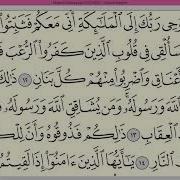 حِى رَبُّكَ إِلَى ٱلْمَلَـٰٓئِكَةِ أَنِّى مَعَكُمْ فَثَبِّتُوا۟
سَأُلْقِى فِى قُلُوبِ ٱلَّذِينَ كَفَرُوا۟ ٱلرُّعْبَ فَ
عْنَاقِ وَٱضْرِبُوا۟ مِنْهُمْ كُلَّ بَنَانٍ ١٢ ذَٰلِكَ
ٱللَّهَ وَرَسُولَهُۥ وَمَن يُشَاقِقِ ٱللَّهَ وَرَسُولَهُۥ
ٱلْعِقَابِ ١٣ ذَٰلِكُمْ فَذُوقُوهُ وَأَنَّ لِلْكَ
ٱلنَّارِ ١٤ يَـٰٓأَيُّهَا ٱلَّذِينَ ءَامَنُوٓا۟ إِذَا لَقِيتُمُ